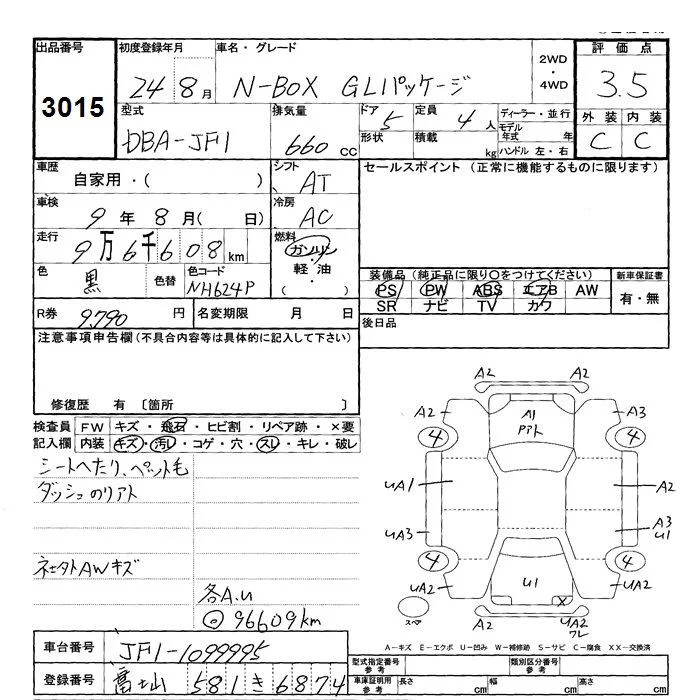 出品番号
3015
初度登録年月
24 8月
車名・グレード
N-BOX GLパッケージ
2WD
・
4WD
評価点
3.5
型式
DBA-JF1
排気量
660 CC
ドア 5
定員 4人
形状
積載 kg
ディーラー・並行
モデル年式 年
ハンドル 左・右
外装 内装
C C
車歴
自家用・( )
シフト
AT
セールスポイント (正常に機能するものに限ります)
車検
9年 8月( 日)
冷房
AC
走行
9万6千608km
燃料
ガソリン
・
軽油
( )
色
黒
色替
色コード
NH624P
装備品(純正品に限り○をつけてください)
PS PW ABS エアB AW
SR ナビ TV カワ
新車保証書
有・無
R券 9,790 円
名変期限 月 日
後日品
注意事項申告欄(不具合内容等は具体的に記入して下さい)
修復歴 有 〔箇所 〕
検査員記入欄
FW キズ・飛石・ヒビ割・リペア跡・×要
内装 キズ・汚レ・コゲ・穴・スレ・キレ・破レ
シートヘタリ、ペット毛
ダッシュのリアト
AWキズ
各A.u
@96609km
A2 A2
A2 A1 A3
4 4
UA1 A2
UA3 A3
U1
4 4
UA2 U1 UA2
X
スペア
A2 UA2
ワレ
A-キズ E-エクボ U-凹み W-補修跡 S-サビ C-腐食 XX-交換済
車台番号 JF1-1099995
登録番号 富士山 581 き 6874
型式指定番号
参考
類別区分番号
参考
車庫証明用
参考
長さ cm
幅 cm
高さ cm